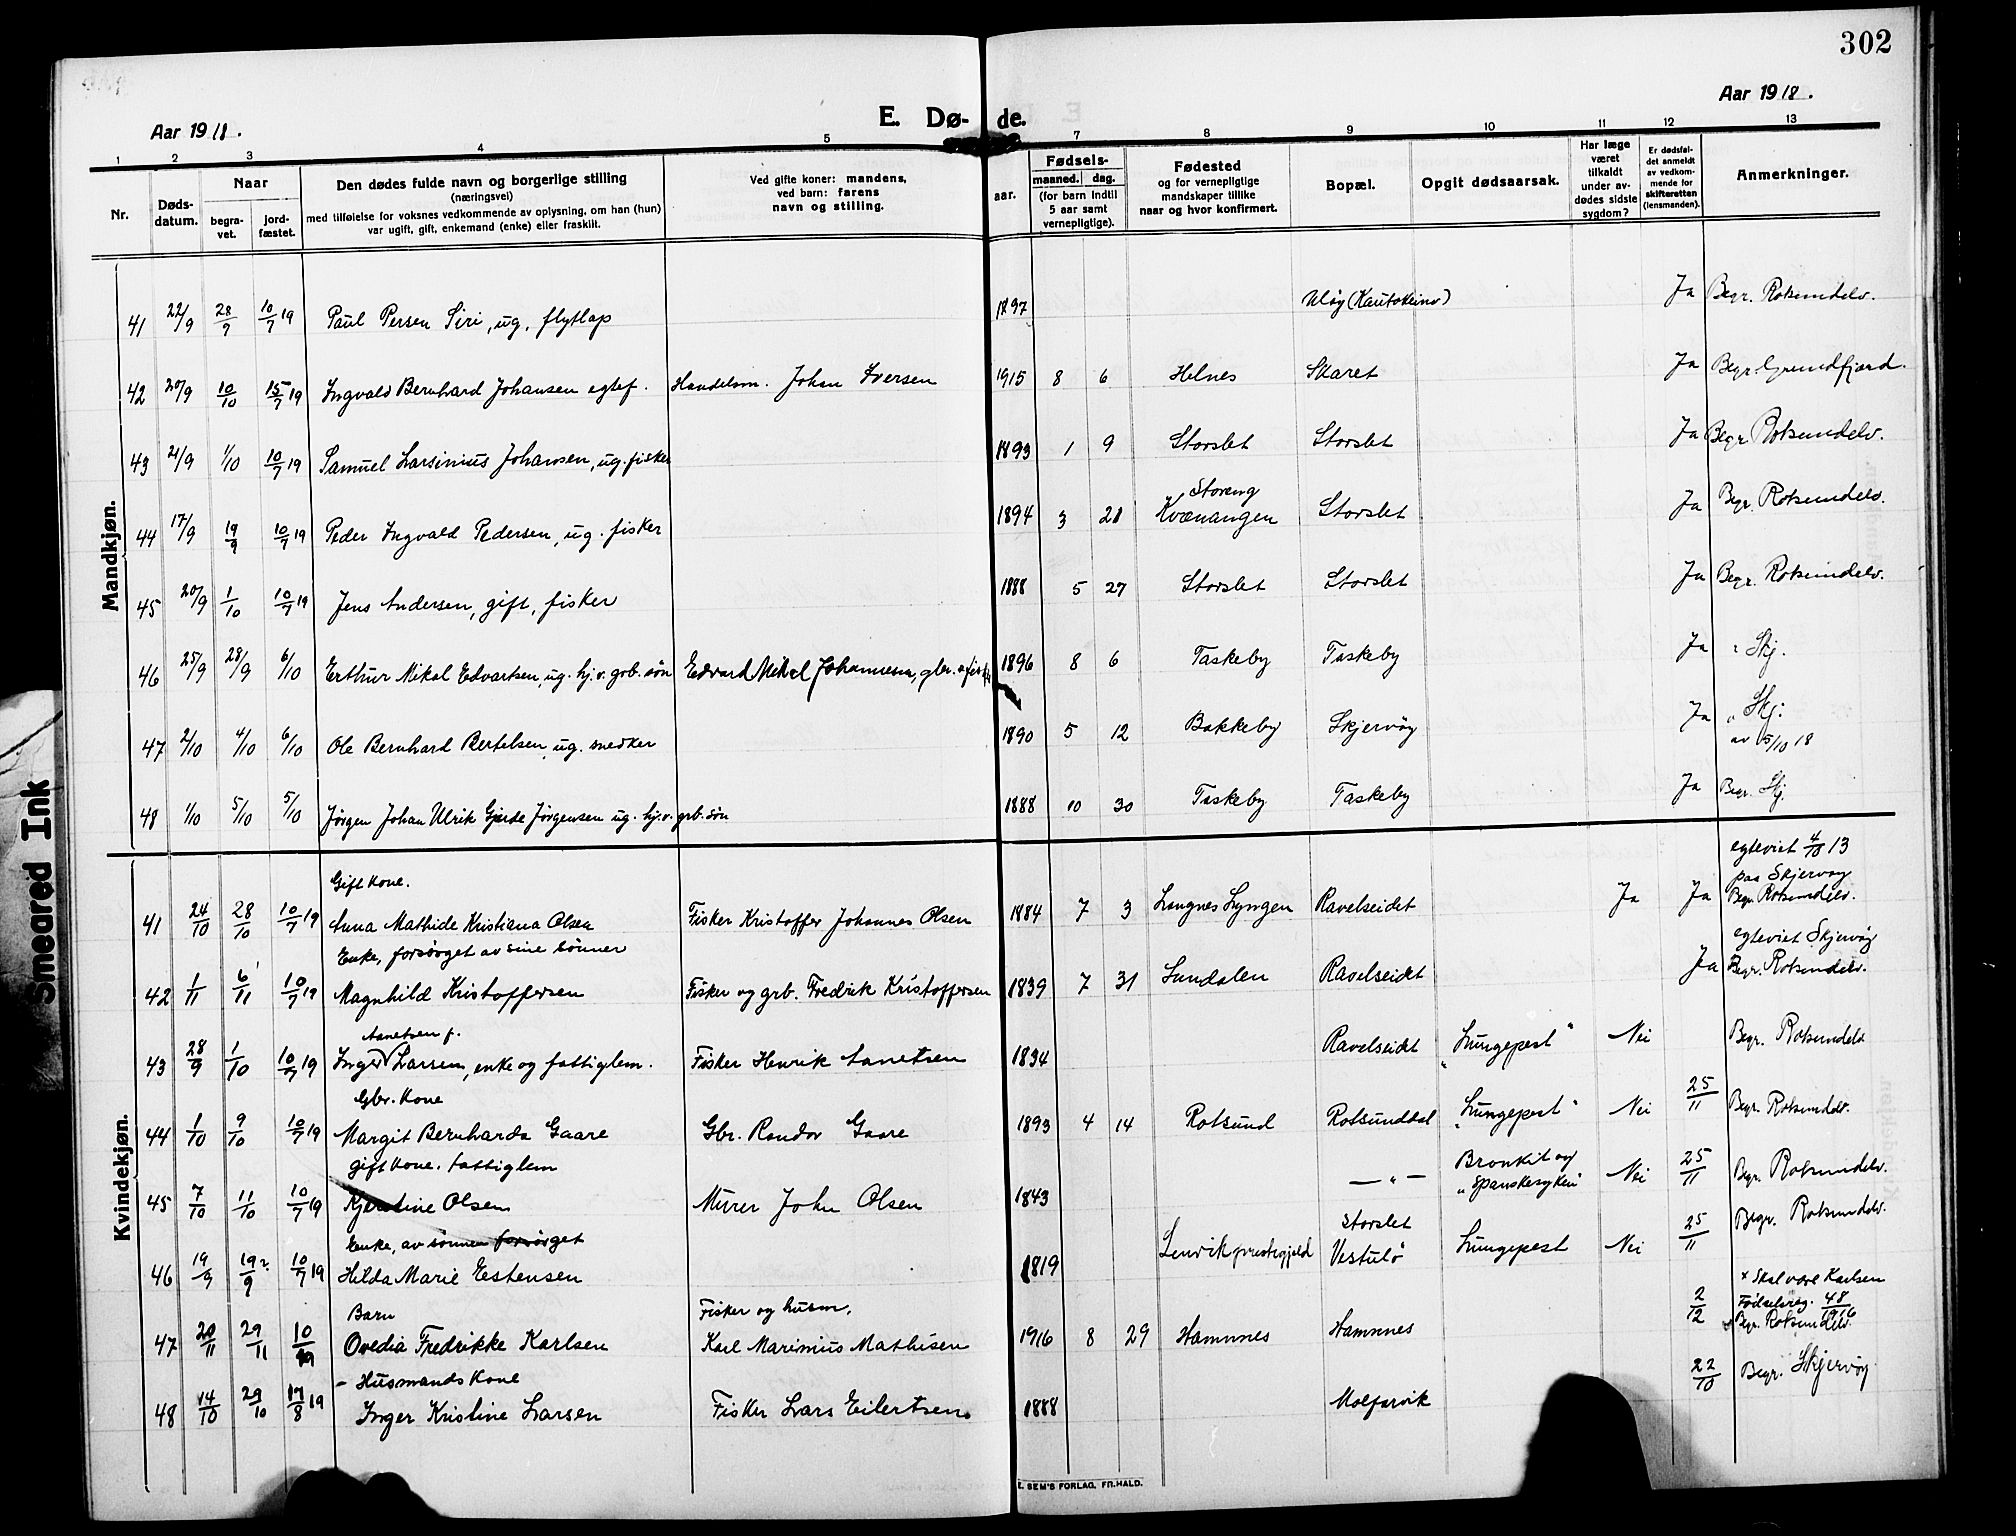 302
Aar 1918.
E. Dø- de.
Aar 1918.
1 2 3 4 5 7 8 9 10 11 12 13
Nr.
Døds-
datum.
Naar
begra-
vet.
jord-
fæstet.
Den dødes fulde navn og borgerlige stilling
(næringsvei)
med tilføielse for voksnes vedkommende av oplysning, om han (hun)
var ugift, gift, enkemand (enke) eller fraskilt.
Ved gifte koner: mandens,
ved barn: farens
navn og stilling.
Fødsels-
aar.
maaned. dag.
(for barn indtil
5 aar samt
vernepligtige).
Fødested
og for vernepligtige
mandskaper tillike
naar og hvor konfirmert.
Bopæl.
Opgit dødsaarsak.
Har læge
været
tilkaldt
under av-
dødes sidste
sygdom?
Er dødsfal-
det anmeldt
av vedkom-
mende for
skifteretten
(lensmanden).
Anmerkninger.
Mandkjøn.
41 22/9 28/9 10/7 19 Paul Persen Siri, ug, flytlap 1897 Uløy (Kautokeino) Ja Begr. Rotsundelv.
42 20/9 10/10 15/7 19 Ingvald Bernhard Johansen egtef. Handelsm. Johan Iversen 1915 8 6 Helnes Skaret Ja Begr. Grundfjord.
43 21/9 1/10 10/7 19 Samuel Larsinius Johansen, ug. fisker 1893 1 9 Storslet Storslet Ja Begr Rotsundelv.
Storeng
44 17/9 19/9 10/7 19 Peder Ingvald Pedersen, ug. fisker 1894 3 21 Kvænangen Storslet Ja Begr. Rotsundelv.
45 20/9 1/10 10/7 19 Jens Andersen, gift, fisker 1888 5 27 Storslet Storslet Ja Begr. Rotsundelv.
46 25/9 28/9 6/10 Erthur Mikal Edvartsen, ug. hj. v. grb. søn Edvard Mikal Johannesen, gbr. o fisker 1896 8 6 Taskeby Taskeby Ja " Skj.
47 2/10 4/10 6/10 Ole Bernhard Bertelsen, ug. snedker 1890 5 12 Bakkeby Skjervøy Ja " Skj.
av 5/10 18
48 1/10 5/10 5/10 Jørgen Johan Ulrik Gjæde Jørgensen ug. hj. v. grb. søn 1888 10 30 Taskeby Taskeby Ja Begr. Skj.
Kvindekjøn.
egteviet 4/10 13
Gift kone. paa Skjervøy
41 24/10 28/10 10/7 19 Anna Mathide Kristiana Olsen Fisker Kristoffer Johannes Olsen 1884 7 3 Langnes Lyngen Ravelseidet Ja Ja Begr. Rotsundelv.
Enke, forsørget av sine sønner egteviet Skjervøy
42 1/11 6/11 10/7 19 Magnhild Kristoffersen Fisker og grb. Fredrik Kristoffersen 1839 7 31 Sundalen Ravelseidet Ja Begr. Rotsundelv.
Aanetsen f.
43 28/9 1/10 10/7 19 Inger Larsen, enke og fattiglem. Fisker Henrik Aanetsen 1834 Ravelseidet "Lungepest" Nei Begr. Rotsundelv
Gbr. kone
44 1/10 9/10 10/7 19 Margit Bernharda Gaare Gbr. Randor Gaare 1893 4 14 Rotsund Rotsunddal "Lungepest" Nei 25/11 Begr. Rotsundelv.
gift kone. fattiglem Bronkit og
45 7/10 11/10 10/7 19 Kjerstine Olsen Murer John Olsen 1843 — " — "Spanskesyken" Nei 25/11 Begr. Rotsundelv.
Enke, av sønnen forsørget Storslet
46 19/9 19?/9 10/7 19 Hilda Marie Estensen 1819 Lenvik prestegjeld Vestulø Lungepest Nei 25/11 Begr. Rotsundelv.
Barn Fisker og husm. × Skal være Karlsen
Fødselsreg. 48/1916
47 20/11 29/11 10/19 Ovedia Fredrikke Karlsen Karl Marinius Mathisen 1916 8 29 Hamnnes Hamnnes 2/12 Begr. Rotsundelv.
- Husmands kone
48 14/10 29/10 17/8 19 Inger Kristine Larsen Fisker Lars Eilertsen 1888 Molfarvik 22/10 Begr. Skjervøy
E. SEM'S FORLAG, FR.HALD.
Smeared Ink